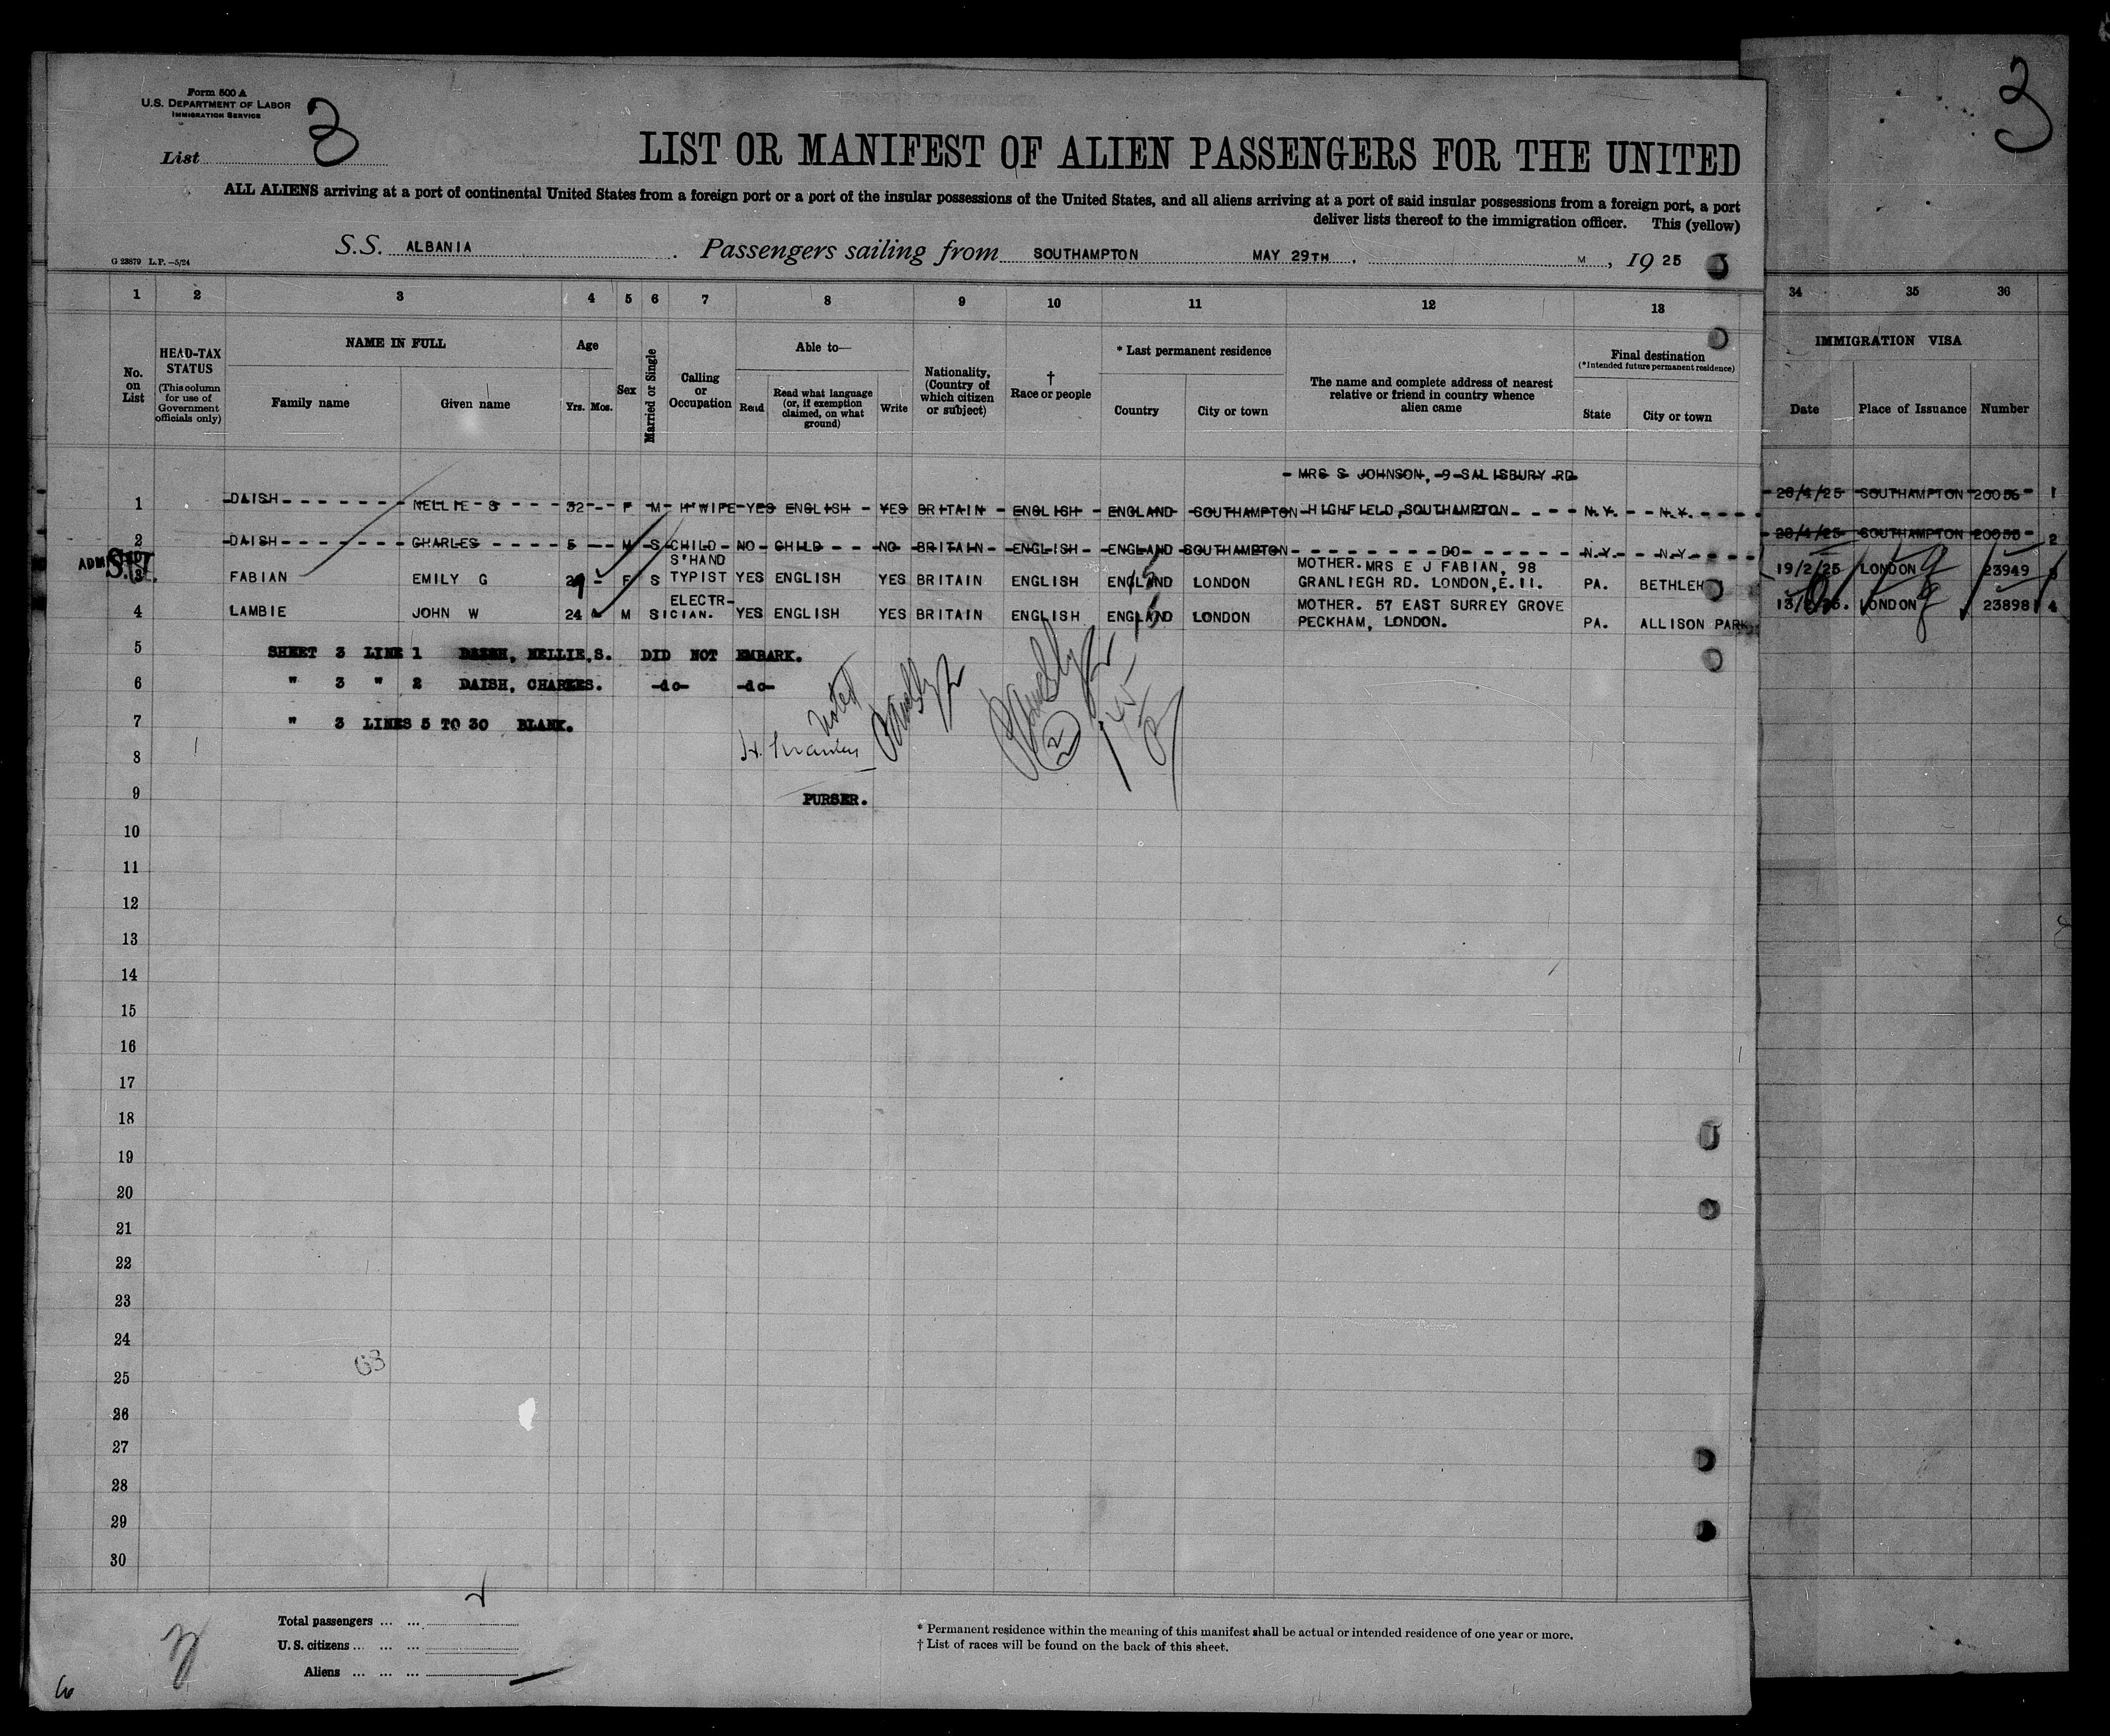 Form 500 A
U.S. DEPARTMENT OF LABOR
IMMIGRATION SERVICE
3
3
List
LIST OR MANIFEST OF ALIEN PASSENGERS FOR THE UNITED
ALL ALIENS arriving at a port of continental United States from a foreign port or a port of the insular possessions of the United States, and all aliens arriving at a port of said insular possessions from a foreign port, a port
deliver lists thereof to the immigration officer. This (yellow)
S.S. ALBANIA Passengers sailing from SOUTHAMPTON MAY 29TH, M, 1925
G 23879 L.P.—5/24
1 2 3 4 5 6 7 8 9 10 11 12 13 34 35 36
No. on List
HEAD-TAX STATUS
(This column for use of Government officials only)
NAME IN FULL
Family name Given name
Age
Yrs. Mos.
Sex
Married or Single
Calling or Occupation
Able to—
Read
Read what language (or, if exemption claimed, on what ground)
Write
Nationality. (Country of which citizen or subject)
† Race or people
* Last permanent residence
Country City or town
The name and complete address of nearest relative or friend in country whence alien came
Final destination
(*Intended future permanent residence)
State City or town
IMMIGRATION VISA
Date Place of Issuance Number
- MRS S JOHNSON, 9 SALISBURY RD
1 DAISH NELLIE S 32 F M H'WIFE YES ENGLISH YES BRITAIN ENGLISH ENGLAND SOUTHAMPTON HIGHFIELD, SOUTHAMPTON N.Y. N.Y. 20/4/25 SOUTHAMPTON 20056 1
2 DAISH CHARLES 5 M S CHILD NO CHILD NO BRITAIN ENGLISH ENGLAND SOUTHAMPTON DO N.Y. N.Y. 20/4/25 SOUTHAMPTON 20055 2
ADM
S'HAND MOTHER. MRS E J FABIAN, 98
3 FABIAN EMILY G F S TYPIST YES ENGLISH YES BRITAIN ENGLISH ENGLAND LONDON GRANLIEGH RD. LONDON, E.11. PA. BETHLEH 19/2/25 LONDON 23949 3
ELECTR- MOTHER. 57 EAST SURREY GROVE
4 LAMBIE JOHN W 24 M S ICIAN. YES ENGLISH YES BRITAIN ENGLISH ENGLAND LONDON PECKHAM, LONDON. PA. ALLISON PARK LONDON 23898 4
5 SHEET 3 LINE 1 DAISH, NELLIE,S. DID NOT EMBARK.
6 " 3 " 2 DAISH, CHARLES. -do- -do-
7 " 3 LINES 5 TO 30 BLANK.
Noted
8
9 PURSER.
10
11
12
13
14
15
16
17
18
19
20
21
22
23
24
63
25
26
27
28
29
30
Total passengers ... ...
U. S. citizens ... ... ...
Aliens ... ... ...
* Permanent residence within the meaning of this manifest shall be actual or intended residence of one year or more.
† List of races will be found on the back of this sheet.